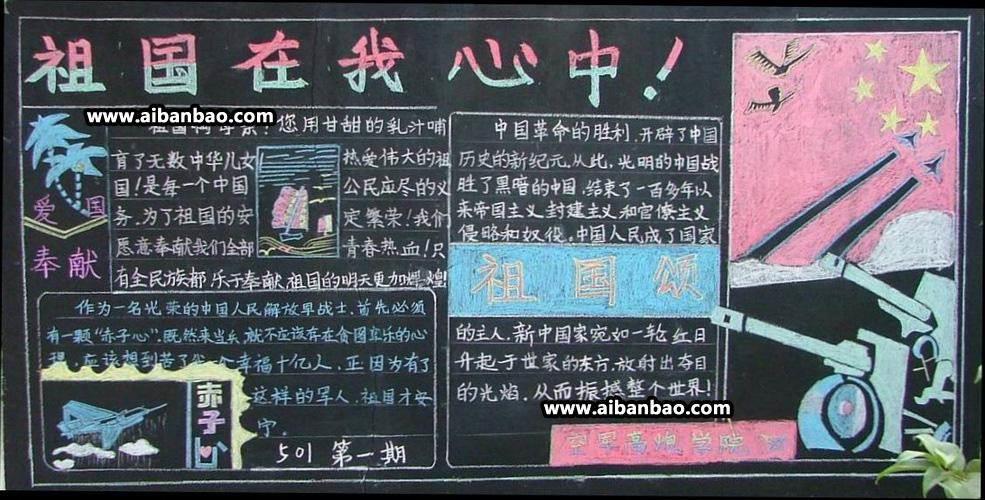 祖国在我心中！
www.aibanbao.com
您用甘甜的乳汁哺
育了无数中华儿女！热爱伟大的祖
国！是每一个中国公民应尽的义
务。为了祖国的安定繁荣！我们
愿意奉献我们全部青春热血！只
有全民族都乐于奉献祖国的明天更加辉煌
爱国
奉献
中国革命的胜利，开辟了中国
历史的新纪元。从此，光明的中国战
胜了黑暗的中国，结束了一百多年以
来帝国主义、封建主义和官僚主义
侵略和奴役。中国人民成了国家
祖国颂
的主人，新中国家宛如一轮红日
升起于世家的东方，放射出夺目
的光焰，从而振撼整个世界！
www.aibanbao.com
空军高炮学院
作为一名光荣的中国人民解放早战士，首先必须
有一颗“赤子心”。既然来当兵就不应该存在贪图享乐的心
理，应该想到苦了我一个幸福十亿人，正因为有了
这样的军人，祖国才安
宁。
赤子心
501 第一期